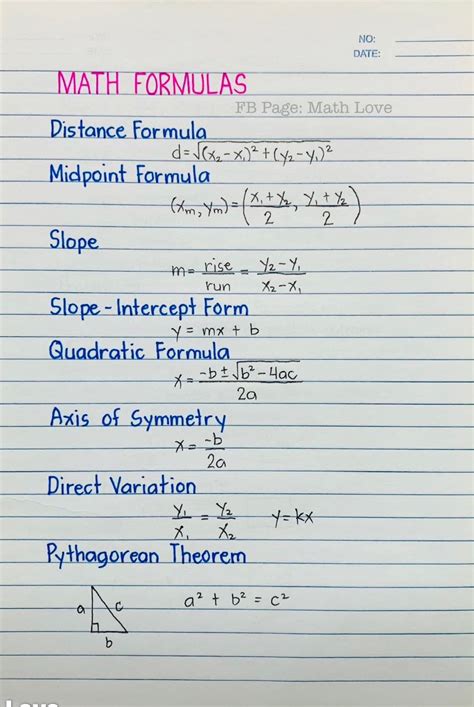 NO:
DATE:
MATH FORMULAS
FB Page: Math Love
Distance Formula
d=√(x₂-x₁)²+(y₂-y₁)²
Midpoint Formula
(xₘ, yₘ)=(x₁+y₂/2, y₁+y₂/2)
Slope
m= rise/run = y₂-y₁/x₂-x₁
Slope-Intercept Form
y = mx + b
Quadratic Formula
x= -b±√b²-4ac/2a
Axis of Symmetry
x= -b/2a
Direct Variation
y₁/x₁ = y₂/x₂ y=kx
Pythagorean Theorem
a c b
a² + b² = c²